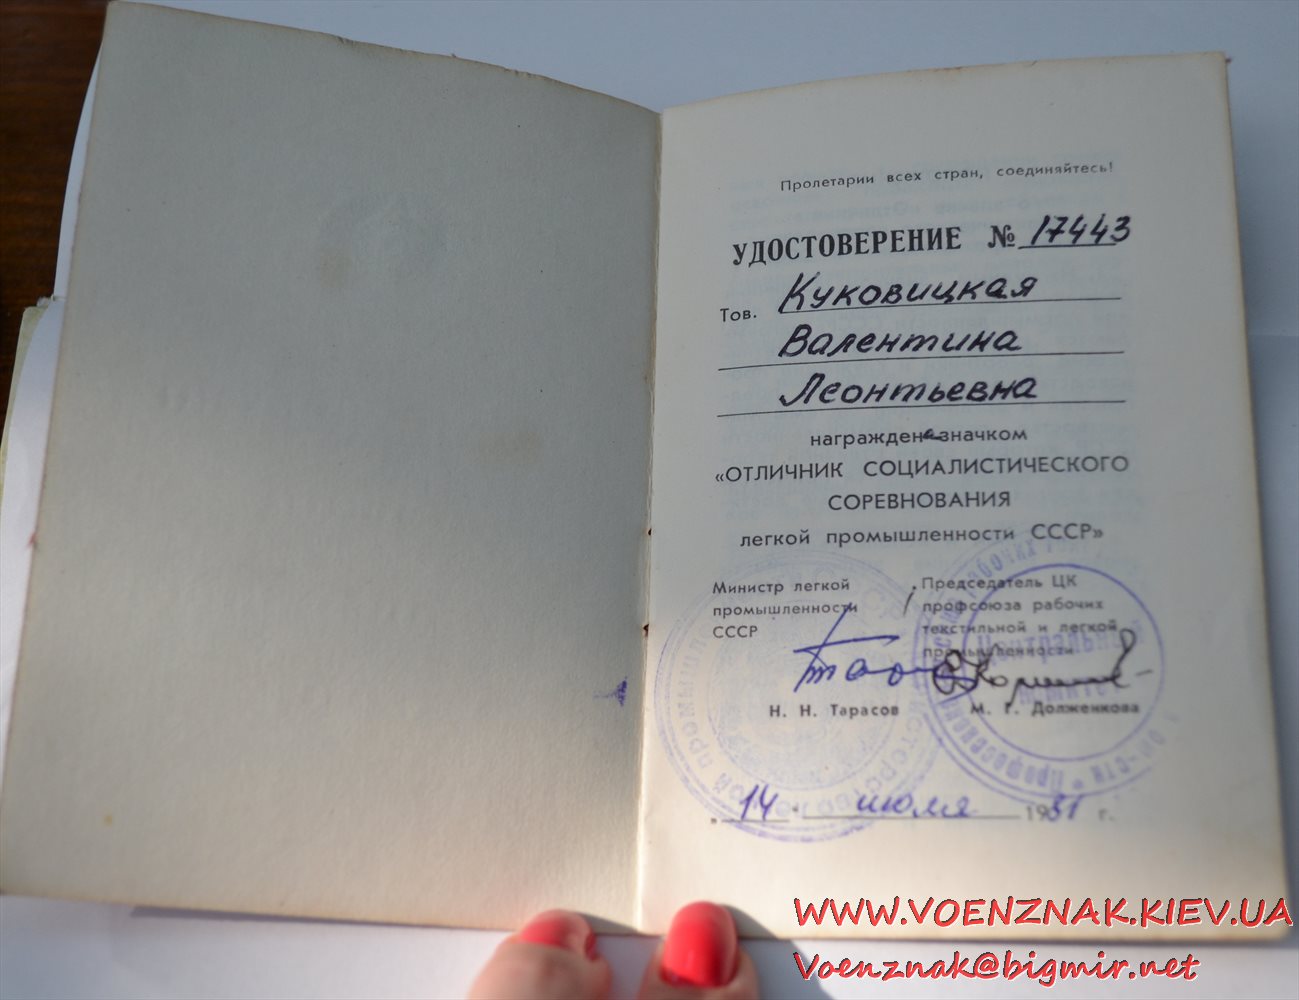 Пролетарии всех стран, соединяйтесь!
УДОСТОВЕРЕНИЕ № 17443
Тов. Куковицкая
Валентина
Леонтьевна
награждена значком
«ОТЛИЧНИК СОЦИАЛИСТИЧЕСКОГО
СОРЕВНОВАНИЯ
легкой промышленности СССР»
Министр легкой
промышленности
СССР
Председатель ЦК
профсоюза рабочих
текстильной и легкой
промышленности
Н. Н. Тарасов
М. Г. Долженкова
Центральный
комитет
„ 14 " июля 1981 г.
WWW.VOENZNAK.KIEV.UA
Voenznak@bigmir.net